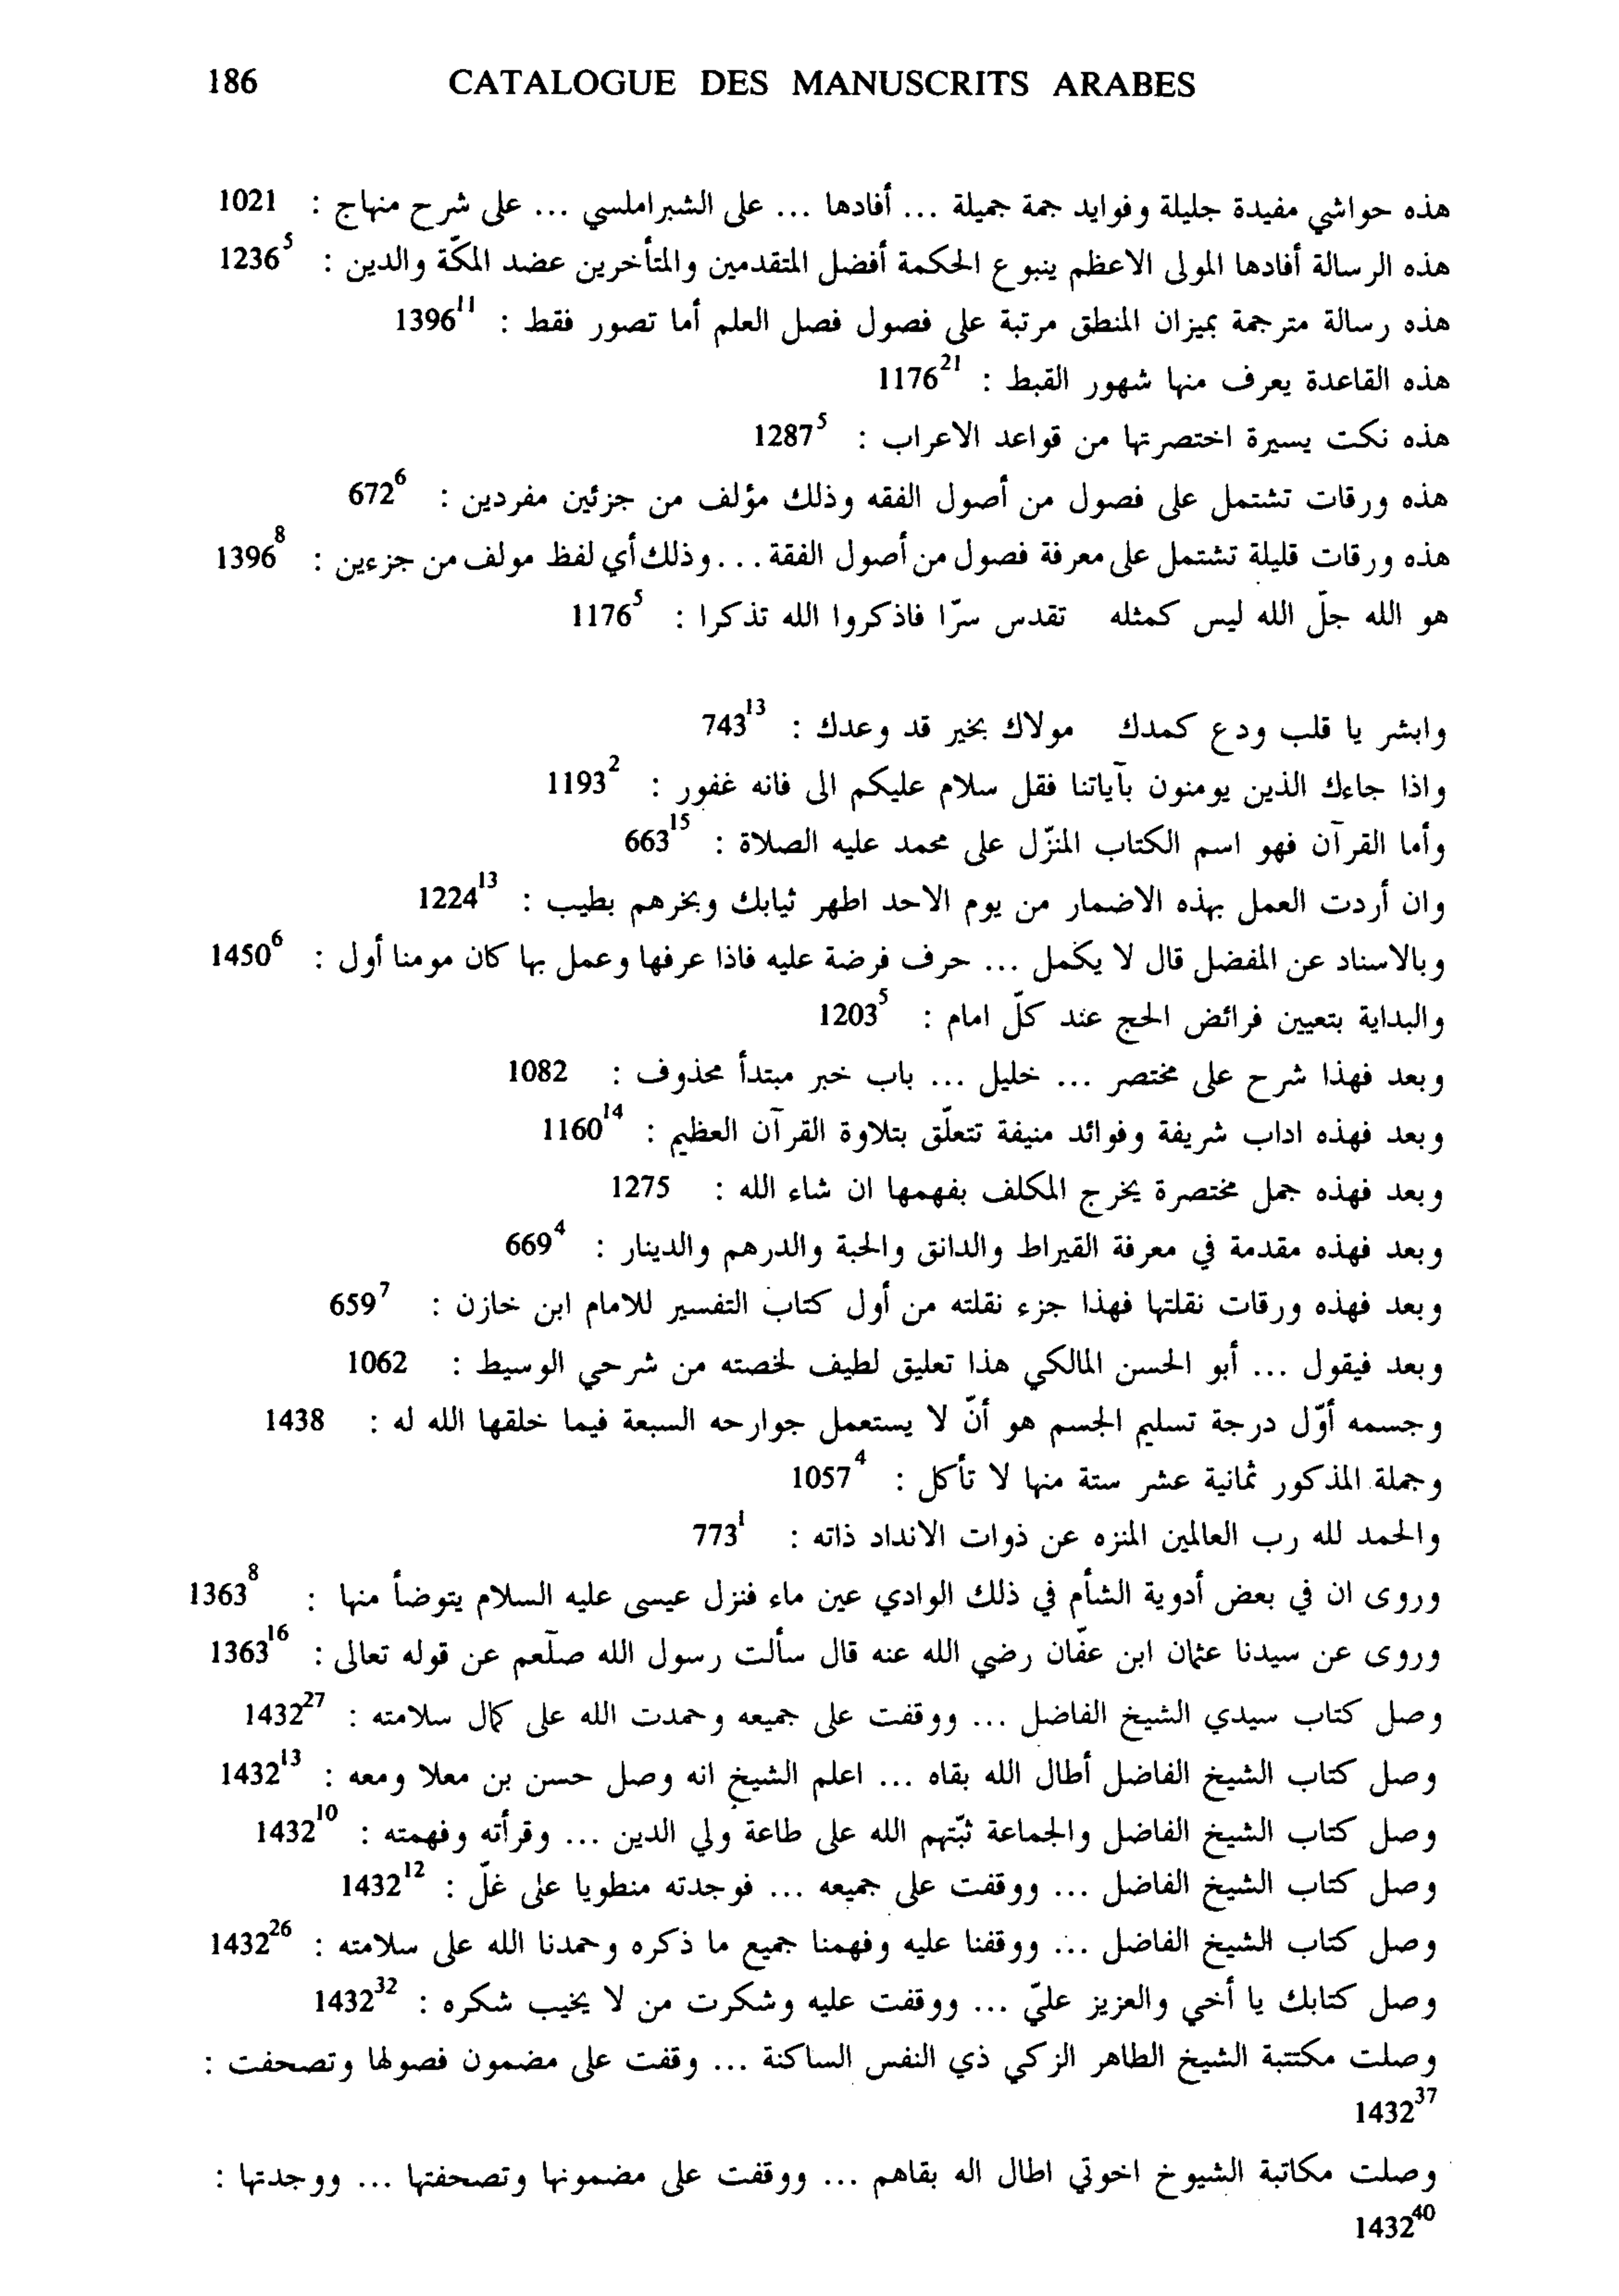 186 CATALOGUE DES MANUSCRITS ARABES
هذه حواشي مفيدة جليلة وفوايد جمة جميلة ... أفادها ... على الشبراملسي ... على شرح منهاج : 1021
هذه الرسالة أفادها المولى الاعظم ينبوع الحكمة أفضل المتقدمين والمتأخرين عضد المكّة والدين : 1236⁵
هذه رسالة مترجمة بميزان المنطق مرتبة على فصول فصل العلم أما تصور فقط : 1396¹¹
هذه القاعدة يعرف منها شهور القبط : 1176²¹
هذه نكت يسيرة اختصرتها من قواعد الاعراب : 1287⁵
هذه ورقات تشتمل على فصول من أصول الفقه وذلك مؤلف من جزئين مفردين : 672⁶
هذه ورقات قليلة تشتمل على معرفة فصول من أصول الفقة ... وذلك أي لفظ مولف من جزءين : 1396⁸
هو الله جلّ الله ليس كمثله تقدس سرّا فاذكروا الله تذكرا : 1176⁵
وابشر يا قلب ودع كمدك مولاك بخير قد وعدك : 743¹³
واذا جاءك الذين يومنون بآياتنا فقل سلام عليكم الى فانه غفور : 1193²
وأما القرآن فهو اسم الكتاب المنزّل على محمد عليه الصلاة : 663¹⁵
وان أردت العمل بهذه الاضمار من يوم الاحد اطهر ثيابك وبخرهم بطيب : 1224¹³
وبالاسناد عن المفضل قال لا يكمل ... حرف فرضة عليه فاذا عرفها وعمل بها كان مومنا أول : 1450⁶
والبداية بتعيين فرائض الحج عند كلّ امام : 1203⁵
وبعد فهذا شرح على مختصر ... خليل ... باب خبر مبتدأ محذوف : 1082
وبعد فهذه اداب شريفة وفوائد منيفة تتعلّق بتلاوة القرآن العظيم : 1160¹⁴
وبعد فهذه جمل مختصرة يخرج المكلف بفهمها ان شاء الله : 1275
وبعد فهذه مقدمة في معرفة القيراط والدانق والحبة والدرهم والدينار : 669⁴
وبعد فهذه ورقات نقلتها فهذا جزء نقلته من أول كتاب التفسير للامام ابن خازن : 659⁷
وبعد فيقول ... أبو الحسن المالكي هذا تعليق لطيف لخصته من شرحي الوسيط : 1062
وجسمه أوّل درجة تسليم الجسم هو أنّ لا يستعمل جوارحه السبعة فيما خلقها الله له : 1438
وجملة المذكور ثمانية عشر ستة منها لا تأكل : 1057⁴
والحمد لله رب العالمين المنزه عن ذوات الانداد ذاته : 773¹
وروى ان في بعض أدوية الشأم في ذلك الوادي عين ماء فنزل عيسى عليه السلام يتوضأ منها : 1363⁸
وروى عن سيدنا عثمان ابن عفّان رضي الله عنه قال سألت رسول الله صلّعم عن قوله تعالى : 1363¹⁶
وصل كتاب سيدي الشيخ الفاضل ... ووقفت على جميعه وحمدت الله على كمال سلامته : 1432²⁷
وصل كتاب الشيخ الفاضل أطال الله بقاه ... اعلم الشيخ انه وصل حسن بن معلا ومعه : 1432¹³
وصل كتاب الشيخ الفاضل والجماعة ثبّتهم الله على طاعة ولي الدين ... وقرأته وفهمته : 1432¹⁰
وصل كتاب الشيخ الفاضل ... ووقفت على جميعه ... فوجدته منطويا على غلّ : 1432¹²
وصل كتاب الشيخ الفاضل ... ووقفنا عليه وفهمنا جميع ما ذكره وحمدنا الله على سلامته : 1432²⁶
وصل كتابك يا أخي والعزيز عليّ ... ووقفت عليه وشكرت من لا يخيب شكره : 1432³²
وصلت مكتتبة الشيخ الطاهر الزكي ذي النفس الساكنة ... وقفت على مضمون فصولها وتصحفت :
1432³⁷
وصلت مكاتبة الشيوخ اخوتي اطال اله بقاهم ... ووقفت على مضمونها وتصحفتها ... ووجدتها :
1432⁴⁰